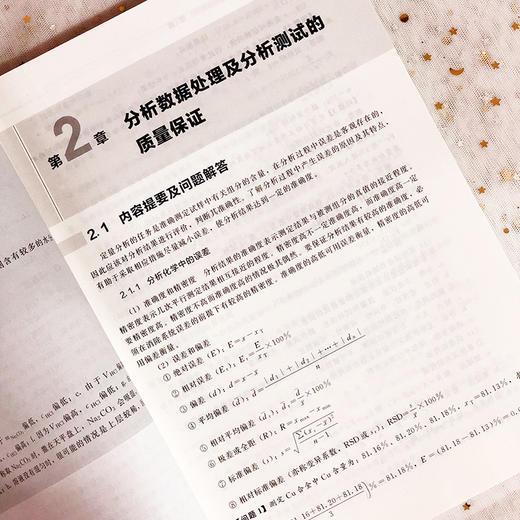 第2章
分析数据处理及分析测试的
质量保证
2.1 内容提要及问题解答
定量分析的任务是准确测定试样中有关组分的含量，在分析过程中误差是客观存在的，
因此应该对分析结果进行评价，判断其准确性，了解分析过程中产生误差的原因及其特点，
有助于采取相应措施尽量减小误差，使分析结果达到一定的准确度。
2.1.1 分析化学中的误差
(1) 准确度和精密度 分析结果的准确度表示测定结果与被测组分的真值的接近程度，
精密度表示几次平行测定结果相互接近的程度。精密度高不一定准确度高，而准确度高一定
要精密度高。精密度不高而准确度高的情况极其偶然。要保证分析结果有较高的准确度，必
须在消除系统误差的前提下有较高的精密度。准确度的高低可用误差衡量，精密度的高低可
用偏差衡量。
(2) 误差和偏差
① 绝对误差 (E)，E=x−x_T
② 相对误差 (E_r)，E_r=E/x_T×100%
③ 偏差 (d)，d=x−x̄
④ 平均偏差 (d̄)，d̄=(|d₁|+|d₂|+…+|d_n|)/n
⑤ 相对平均偏差 (d̄_r)，d̄_r=d̄/x̄×100%
⑥ 极差或全距 (R)，R=x_max−x_min
⑦ 标准偏差 (s)，s=√(Σ(x_i−x̄)²/(n−1))
⑧ 相对标准偏差 (亦称变异系数，RSD或s_r)，RSD=s/x̄×100%
问题1】 测定Cu合金中Cu含量为，81.16%，81.20%，81.18%，x_T=81.13%，
16+81.20+81.18)/3]%=81.18%，E=(81.18−81.13)%=0.
因含有较多的水
偏低，c_HCl偏低，c，由T V
l，因为V_HCl偏高，c_HCl偏低
称取Na₂CO₃时，撒在天平盘上，Na₂CO₃